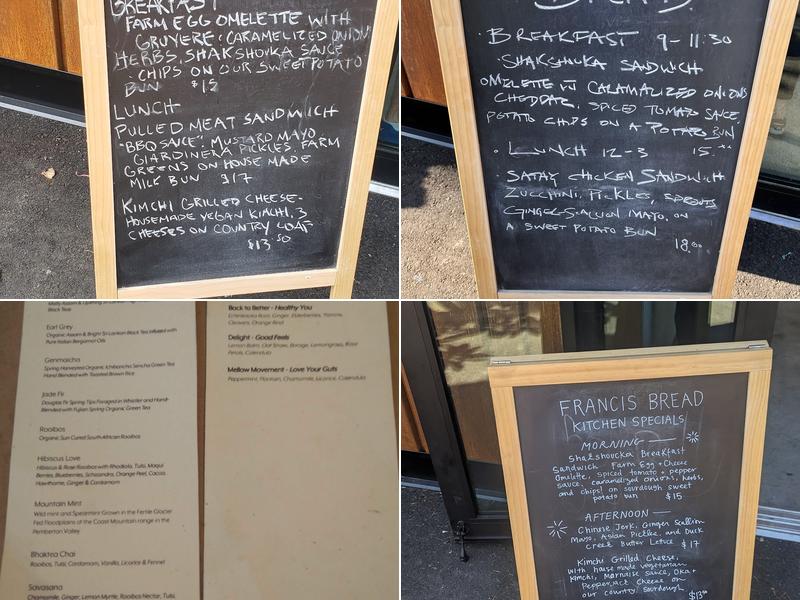 BREAKFAST
FARM EGG OMELETTE WITH
GRUYERE, CARAMELIZED ONION
HERBS, SHAKSHOVKA SAUCE
· CHIPS ON OUR SWEET POTATO
BUN $15
LUNCH
PULLED MEAT SANDWICH
"BBQ SAUCE", MUSTARD MAYO
GIARDINERA PICKLES, FARM
GREENS ON HOUSE MADE
MILK BUN $17
KIMCHI GRILLED CHEESE-
HOUSEMADE VEGAN KIMCHI, 3
CHEESES ON COUNTRY LOAF
$13 50
BREAD
· BREAKFAST 9-11:30
· SHAKSHUKA SANDWICH
OMELETTE W/ CALAMALIZED ONIONS
CHEDDAR, SPICED TOMATO SAUCE,
POTATO CHIPS ON A POTATO BUN
15.
· LUNCH 12-3
· SATAY CHICKEN SANDWICH
ZUCCHINI, PICKLES, SPROUTS
GINGER-SCALLION MAYO, ON
A SWEET POTATO BUN
18.00
Black Teas
Earl Grey
Organic Assam & Bright Sri Lankan Black Tea Infused with
Pure Italian Bergamot Oils
Genmaicha
Spring Harvested Organic Ichibancha Sencha Green Tea
Hand Blended with Toasted Brown Rice
Jade Fir
Douglas Fir Spring Tips Foraged in Whistler and Hand-
Blended with Fujian Spring Organic Green Tea
Rooibos
Organic Sun Cured South African Rooibos
Hibiscus Love
Hibiscus & Rose Rooibos with Rhodiola, Tulsi, Maqui
Berries, Blueberries, Schizandra, Orange Peel, Cacao,
Hawthorne, Ginger & Cardamom
Mountain Mint
Wild mint and Spearmint Grown in the Fertile Glacier
Fed Floodplains of the Coast Mountain range in the
Pemberton Valley
Bhaktea Chai
Rooibos, Tulsi, Cardamom, Vanilla, Licorice & Fennel
Savasana
Chamomile, Ginger, Lemon Myrtle, Rooibos Nectar, Tulsi,
Back to Better - Healthy You
Echinacea Root, Ginger, Elderberries, Yarrow,
Cleavers, Orange Rind
Delight - Good Feels
Lemon Balm, Oat Straw, Borage, Lemongrass, Rose
Petals, Calendula
Mellow Movement - Love Your Guts
Peppermint, Plantain, Chamomile, Licorice, Calendula
FRANCIS BREAD
KITCHEN SPECIALS
MORNING
Shakshoucka Breakfast
Sandwich Farm Egg + Cheese
Omelette, spiced tomato + pepper
sauce, caramelized onions, herbs,
and chips! on sourdough sweet
potato bun $15
AFTERNOON
Chinese Jerk, Ginger Scallion
Mayo, Asian Pickle, and Duck
Creek Butter Lettuce $17
Kimchi Grilled Cheese,
with house made vegetarian
Kimchi, Mornaise Sauce, Oka +
PepperJack Cheese on
our country Sourdough
$13.50